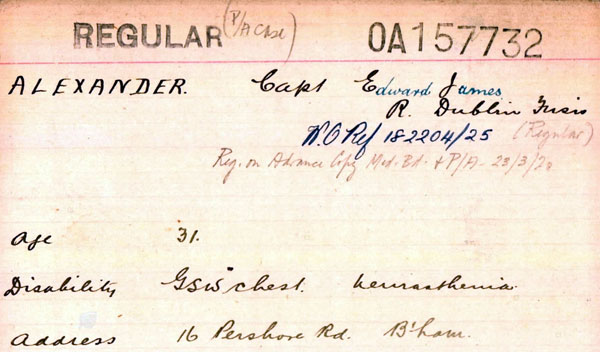 REGULAR (P/A Case) OA157732
ALEXANDER. Capt Edward James
R. Dublin Fusis
W.O Ref 182204/25 (Regular)
Reg. on Advance Copy Med. Bd. + P/A - 23/3/20
Age 31.
Disability GSW chest. neurasthenia
Address 16 Pershore Rd. B'ham.